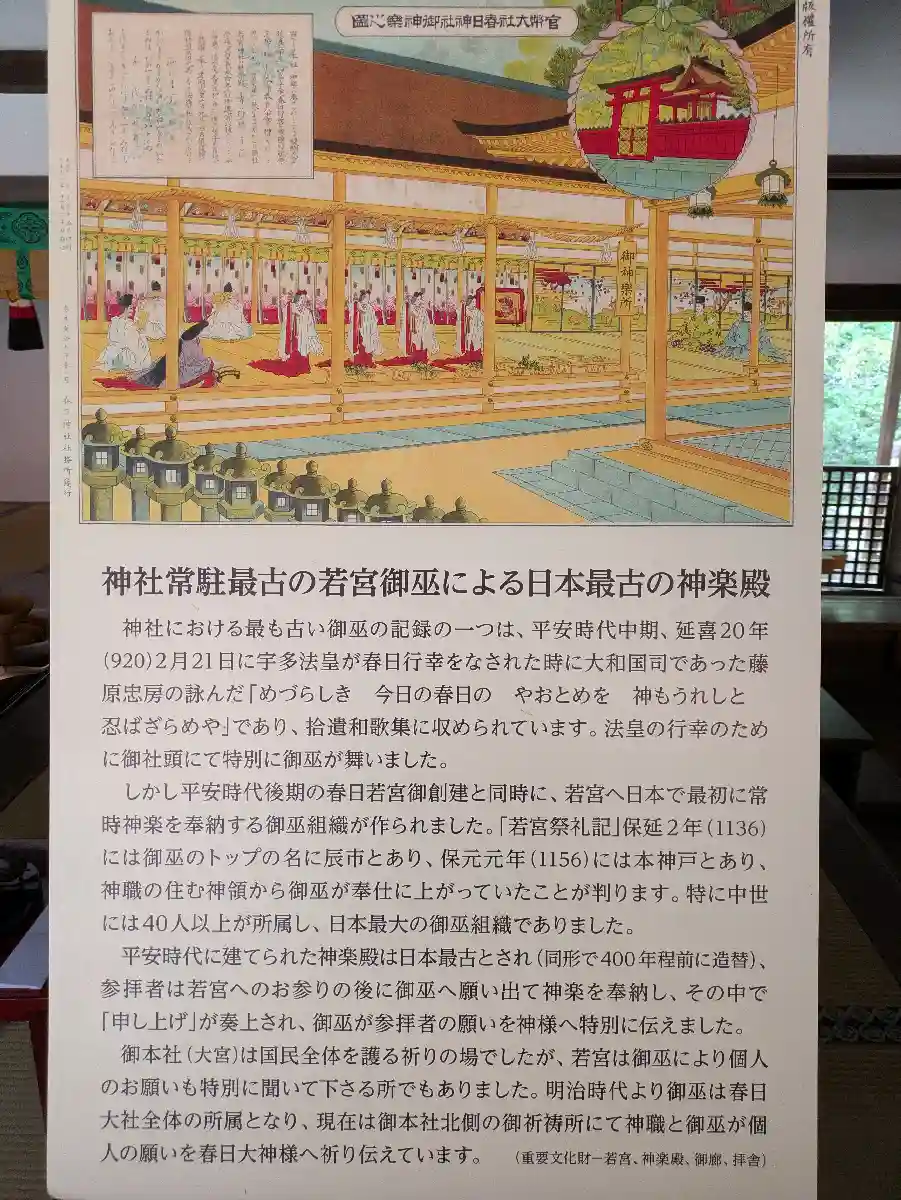 版權所有
官幣大社春日神社御神樂之圖
御神樂所
神社常駐最古の若宮御巫による日本最古の神楽殿
神社における最も古い御巫の記録の一つは、平安時代中期、延喜20年
(920)2月21日に宇多法皇が春日行幸をなされた時に大和国司であった藤
原忠房の詠んだ「めづらしき　今日の春日の　やおとめを　神もうれしと
忍ばざらめや」であり、拾遺和歌集に収められています。法皇の行幸のため
に御社頭にて特別に御巫が舞いました。
しかし平安時代後期の春日若宮御創建と同時に、若宮へ日本で最初に常
時神楽を奉納する御巫組織が作られました。「若宮祭礼記」保延2年(1136)
には御巫のトップの名に辰市とあり、保元元年(1156)には本神戸とあり、
神職の住む神領から御巫が奉仕に上がっていたことが判ります。特に中世
には40人以上が所属し、日本最大の御巫組織でありました。
平安時代に建てられた神楽殿は日本最古とされ(同形で400年程前に造替)、
参拝者は若宮へのお参りの後に御巫へ願い出て神楽を奉納し、その中で
「申し上げ」が奏上され、御巫が参拝者の願いを神様へ特別に伝えました。
御本社(大宮)は国民全体を護る祈りの場でしたが、若宮は御巫により個人
のお願いも特別に聞いて下さる所でもありました。明治時代より御巫は春日
大社全体の所属となり、現在は御本社北側の御祈祷所にて神職と御巫が個
人の願いを春日大神様へ祈り伝えています。　(重要文化財—若宮、神楽殿、御廊、拝舎)